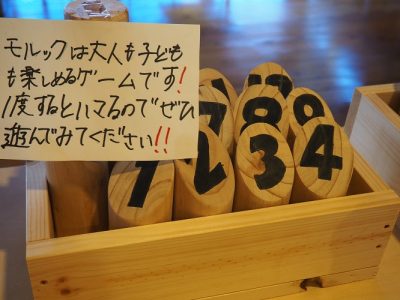 モルックは大人も子ども
も楽しめるゲームです!
1度するとハマるのでぜひ
遊んでみてください!!
7 8 9
1 2 3 4